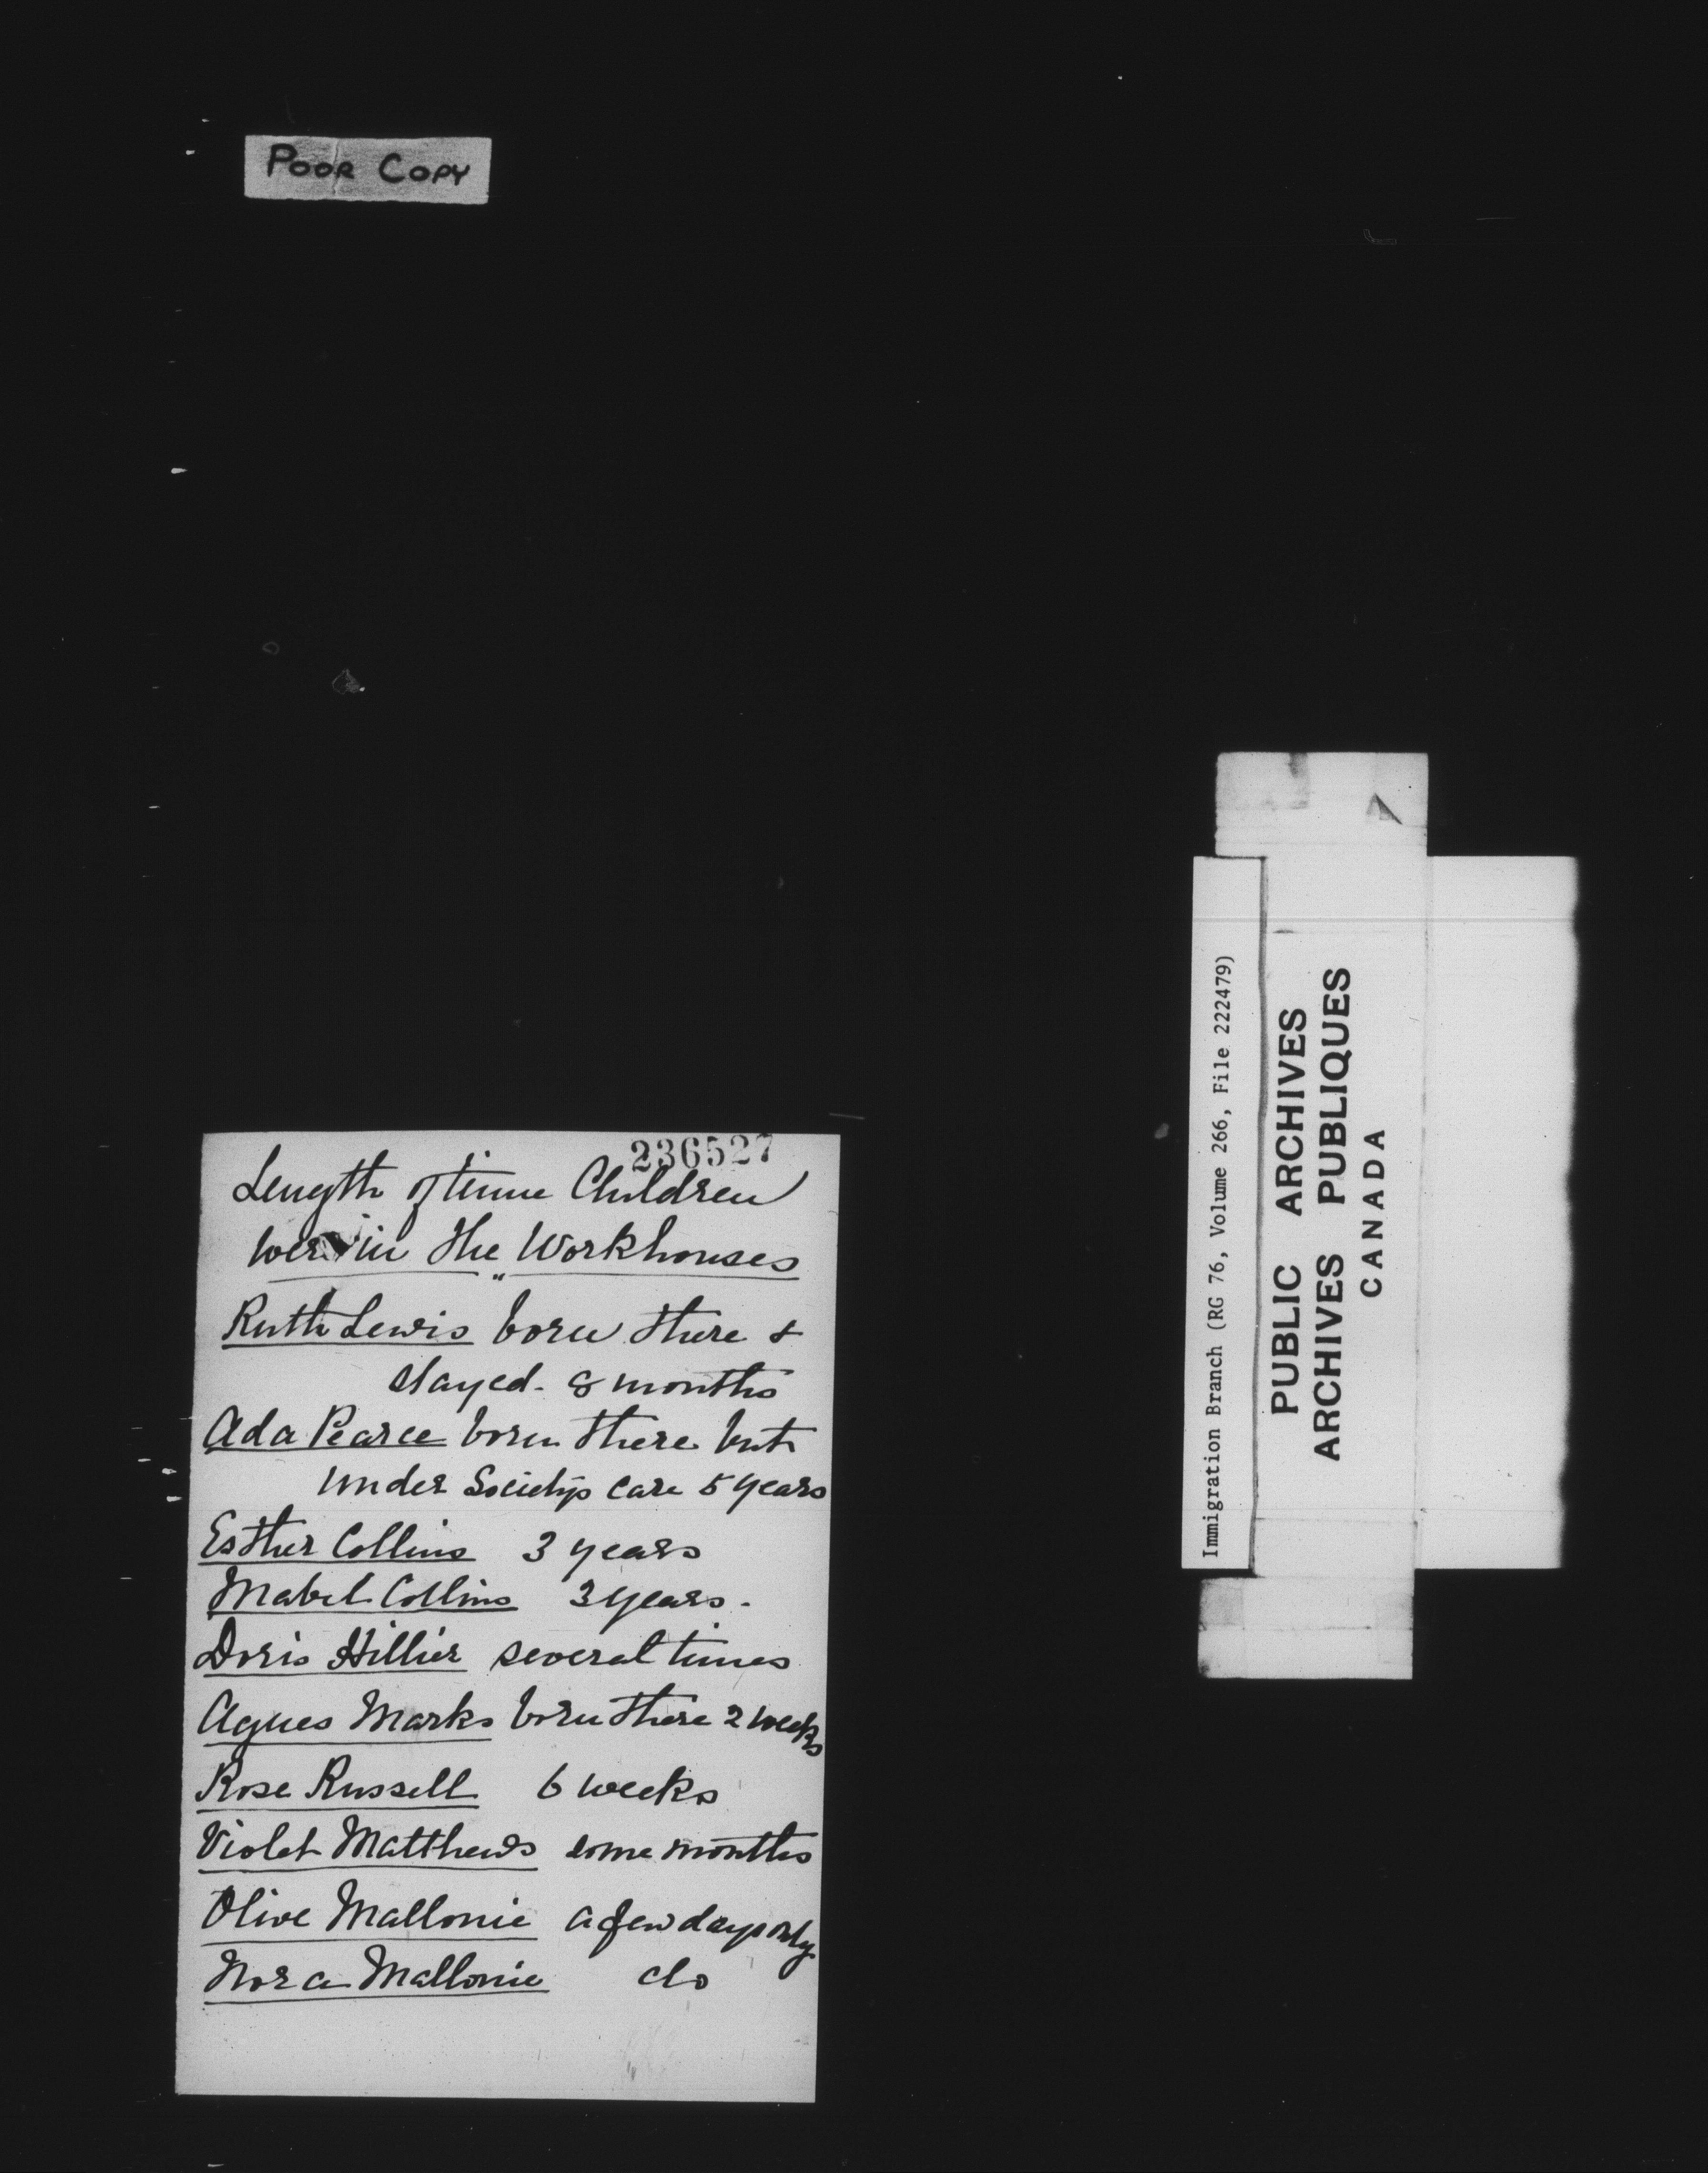 POOR COPY
236527
Length of time Children
were in the Workhouses
Ruth Lewis born there &
stayed - 8 months
Ada Pearce born there but
under Society's care 5 years
Esther Collins 3 years
Mabel Collins 3 years -
Doris Hillier several times
Agnes Marks born there 2 weeks
Rose Russell 6 weeks
Violet Matthews some months
Olive Mallonie a few days only
Nora Mallonie do
Immigration Branch (RG 76, Volume 266, File 222479)
PUBLIC ARCHIVES
ARCHIVES PUBLIQUES
CANADA